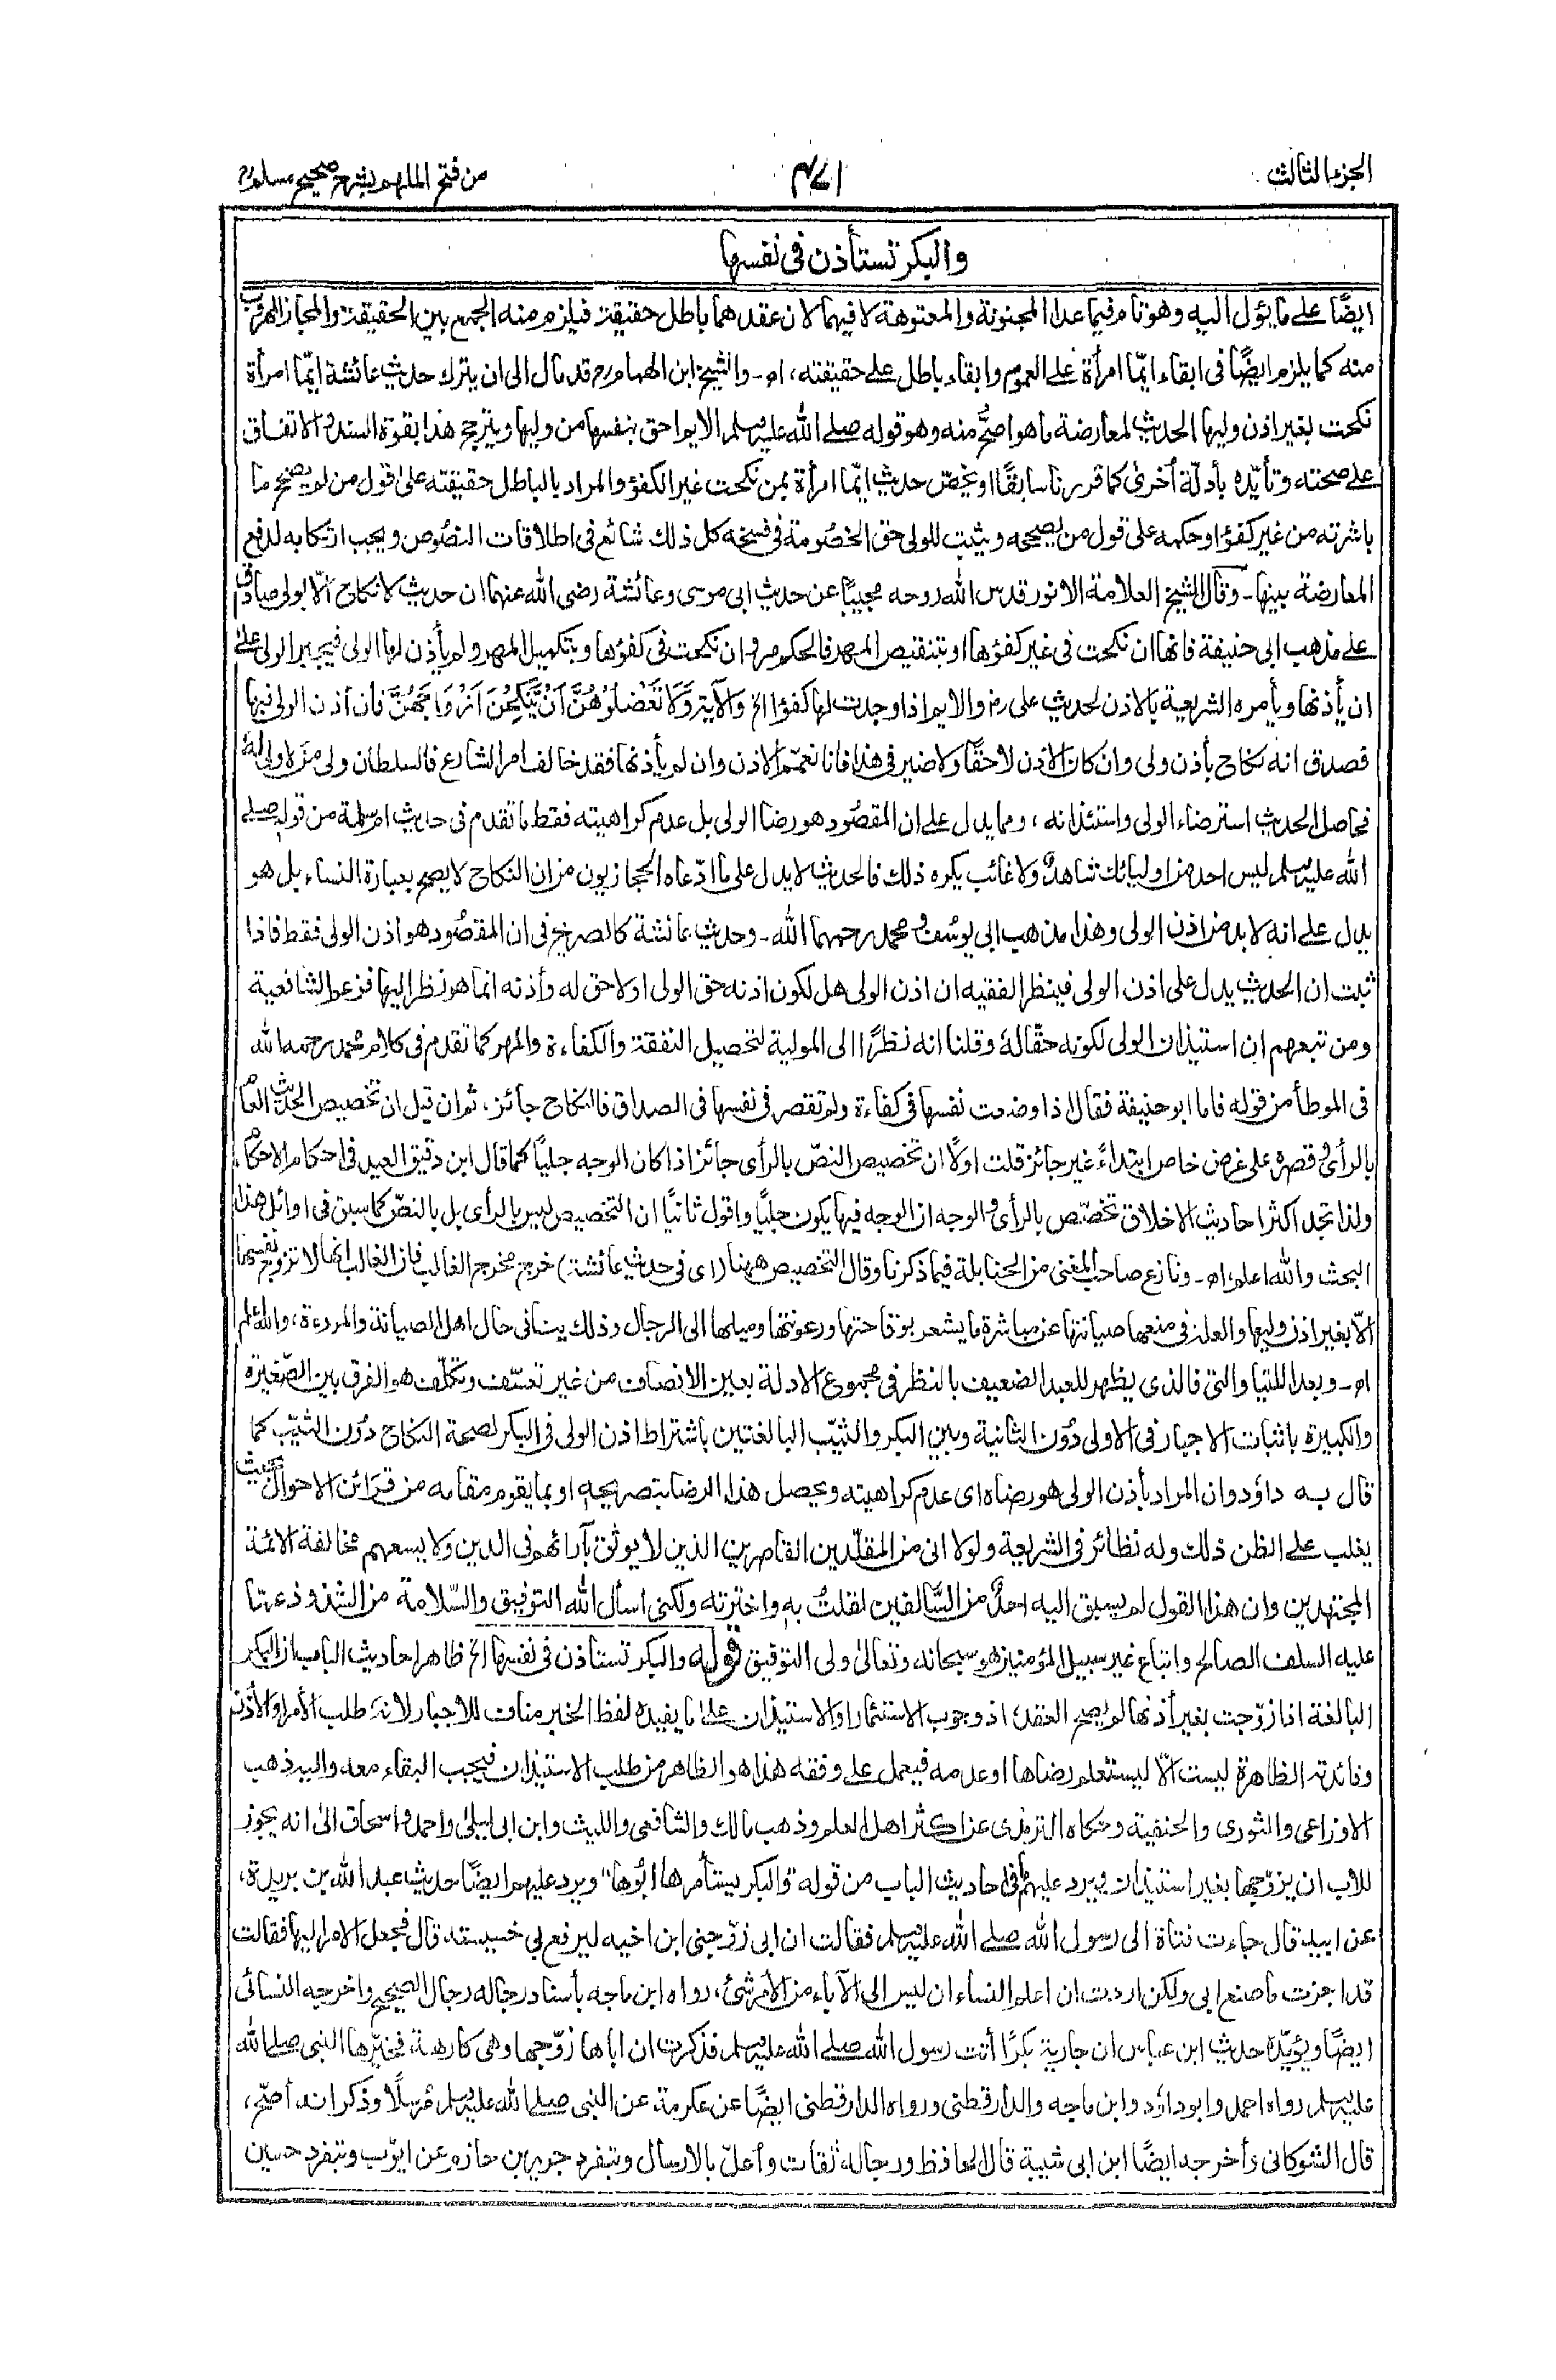 الجزء الثالث
٤٧١
من فتح الملهم بشرح صحيح مسلم
والبكر تستأذن فى نفسها
ايضًا على ما يؤل اليه وهو تام فيما عدا المجنونة والمعتوهة لا فيهما لان عقدهما باطل حقيقة فيلزم منه الجمع بين الحقيقة والمجاز المهروب
منه كما يلزم ايضًا فى ابقاء ايّما امرأة على العموم وابقاء باطل على حقيقته، اھ ـ والشيخ ابن الهمام رح قد مال الى ان يترك حديث عائشة ايّما امرأة
نكحت بغير اذن وليها الحديث لمعارضة ما هو اصحّ منه وهو قوله صلے الله عليه وسلم الايم احق بنفسها من وليها ويترجح هذا بقوة السند والاتفاق
على صحته وتأيّده بأدلّة أخرىٰ كما قررنا سابقًا او يخصّ حديث ايّما امرأة بمن نكحت غير الكفؤ والمراد بالباطل حقيقته علىٰ قول من لم يصحح ما
باشرته من غير كفؤ او حكمه على قول من يصححه ويثبت للولى حق الخصُومة فى فسخه كل ذلك شائع فى اطلاقات النصُوص ويجب ارتكابه لدفع
المعارضة بينها ـ وقال الشيخ العلامة الانور قدس الله روحه مجيبًا عن حديث ابى موسى وعائشة رضى الله عنهما ان حديث لا نكاح الّا بولى صادق
على مذهب ابى حنيفة فانها ان نكحت فى غير كفؤها او بتنقيص المهر فالحكم مر وان نكحت فى كفؤها وبتكميل المهر ولم يأذن لها الولى فيجبر الولى علىٰ
ان يأذنها ويأمره الشريعة بالاذن لحديث على رض والايم اذا وجدت لها كفؤا الخ والآية وَلَا تَعْضُلُوْهُنَّ اَنْ يَّنْكِحْنَ اَزْوَاجَهُنَّ فان أذن الولى فبها
فصدق انه نكاح بأذن ولى وان كان الاذن لاحقًا ولا ضير فى هذا فانا نعمّم الاذن وان لم يأذنها فقد خالف امر الشارع فالسلطان ولى من لا ولى لهٗ
فحاصل الحديث استرضاء الولى واستئذانه، ومما يدل على ان المقصُود هو رضا الولى بل عدم كراهيته فقط ما تقدم فى حديث ام سلمة من قوله صلے
الله عليه وسلم ليس احد من اوليائك شاهدٌ ولا غائب يكره ذلك فالحديث لا يدل على ما ادّعاه الحجازيون من ان النكاح لا يصح بعبارة النساء بل هو
يدل على انه لا بد من اذن الولى وهذا مذهب ابى يوسُف ومحمد رحمهما الله ـ وحديث عائشة كالصريح فى ان المقصُود هو اذن الولى فقط فاذا
ثبت ان الحديث يدل على اذن الولى فينظر الفقيه ان اذن الولى هل لكون اذنه حق الولى او لا حق له وأذنه انما هو نظر اليها فزعم الشافعية
ومن تبعهم ان استيذان الولى لكونه حقًّا لهٗ وقلنا انه نظرًا الى المولية لتحصيل النفقة والكفاءة والمهر كما تقدم فى كلام محمد رحمه الله
فى الموطأ من قوله فاما ابو حنيفة فقال اذا وضعت نفسها فى كفاءة ولم تقصر فى نفسها فى الصداق فالنكاح جائز، ثم ان قيل ان تخصيص الحديث العامّ
بالرأى وقصره على غرض خاص ابتداءً غير جائز قلت اولًا ان تخصيص النصّ بالرأى جائز اذا كان الوجه جليًا كما قال ابن دقيق العيد فى احكام الاحكام،
ولذا تجد اكثر احاديث الاخلاق تخصّص بالرأى والوجه ان الوجه فيها يكون جليًّا واقول ثانيًا ان التخصيص ليس بالرأى بل بالنصّ كما سبق فى اوائل هذا
البحث والله اعلم، اھ ـ ونازع صاحب المغنى من الحنابلة فيما ذكرنا وقال التخصيص ههنا (اى فى حديث عائشة) خرج مخرج الغالب فان الغالب انها لا تزوج نفسها
الّا بغير اذن وليها والعلة فى منعها صيانتها عن مباشرة ما يشعر بوقاحتها ورعونتها وميلها الى الرجال وذلك ينافى حال اهل الصيانة والمروءة، والله اعلم
اھ ـ وبعد اللتيا والتى فالذى يظهر للعبد الضعيف بالنظر فى مجموع الادلة بعين الانصاف من غير تعسّف وتكلّف هو الفرق بين الصّغيرة
والكبيرة باثبات الاجبار فى الاولى دُون الثانية وبين البكر والثيّب البالغتين باشتراط اذن الولى فى البكر لصحة النكاح دُون الثيّب كما
قال به داؤد وان المراد بأذن الولى هو رضاه اى عدم كراهيته ويحصل هذا الرضا بتصريحه او بما يقوم مقامه من قرَائن الاحوال بحيث
يغلب على الظن ذلك وله نظائر فى الشريعة ولولا انى من المقلّدين القاصرين الذين لا يوثق بآرائهم فى الدين ولا يسعهم مخالفة الائمة
المجتهدين وان هذا القول لم يسبق اليه احدٌ من السَّالفين لقلتُ به واخترته ولكنى اسأل الله التوفيق والسّلامة من الشذوذ عما
عليه السلف الصالح واتباع غير سبيل المؤمنين وهو سبحانه وتعالىٰ ولى التوفيق قوله والبكر تستاذن فى نفسها الخ ظاهر احاديث الباب ان البكر
البالغة اذا زوّجت بغير أذنها لم يصح العقد، اذ وجوب الاستئمار او الاستيذان علىٰ ما يفيده لفظ الخبر مناف للاجبار لانه طلب الأمر او الأذن
وفائدته الظاهرة ليست الّا ليستعلم رضاها او عدمه فيعمل على وفقه هذا هو الظاهر من طلب الاستيذان فيجب البقاء معه واليه ذهب
الاوزاعى والثورى والحنفية وحكاه الترمذى عن اكثر اهل العلم وذهب مالك والشافعى والليث وابن ابى ليلىٰ واحمد واسحاق الىٰ انه يجوز
للاب ان يزوّجها بغير استيذان ويرد عليهم ما فى احاديث الباب من قوله "والبكر يستأمرها ابُوها" ويرد عليهم ايضًا حديث عبد الله بن بريدة،
عن ابيه قال جاءت فتاة الى رسول الله صلے الله عليه وسلم فقالت ان ابى زوّجنى ابن اخيه ليرفع بى خسيسته قال فجعل الامر اليها فقالت
قد اجزت ما صنع ابى ولكن اردت ان اعلم النساء ان ليس الى الآباء من الأمر شئ، رواه ابن ماجه بأسناد رجاله رجال الصحيح واخرجه النسائى
ايضًا ويؤيّده حديث ابن عباس ان جارية بكرًا أتت رسول الله صلے الله عليه وسلم فذكرت ان اباها زوّجها وهى كارهة، فخيّرها النبى صلے الله
عليه وسلم رواه احمد وابو داؤد وابن ماجه والدارقطنى ورواه الدارقطنى ايضًا عن عكرمة عن النبى صلے الله عليه وسلم مُرسلًا وذكر انه أصحّ،
قال الشوكانى وأخرجه ايضًا ابن ابى شيبة قال الحافظ ورجاله ثقات وأعلّ بالارسال وتبفرد جرير بن حازم عن ايوّب وتبفرد حسين